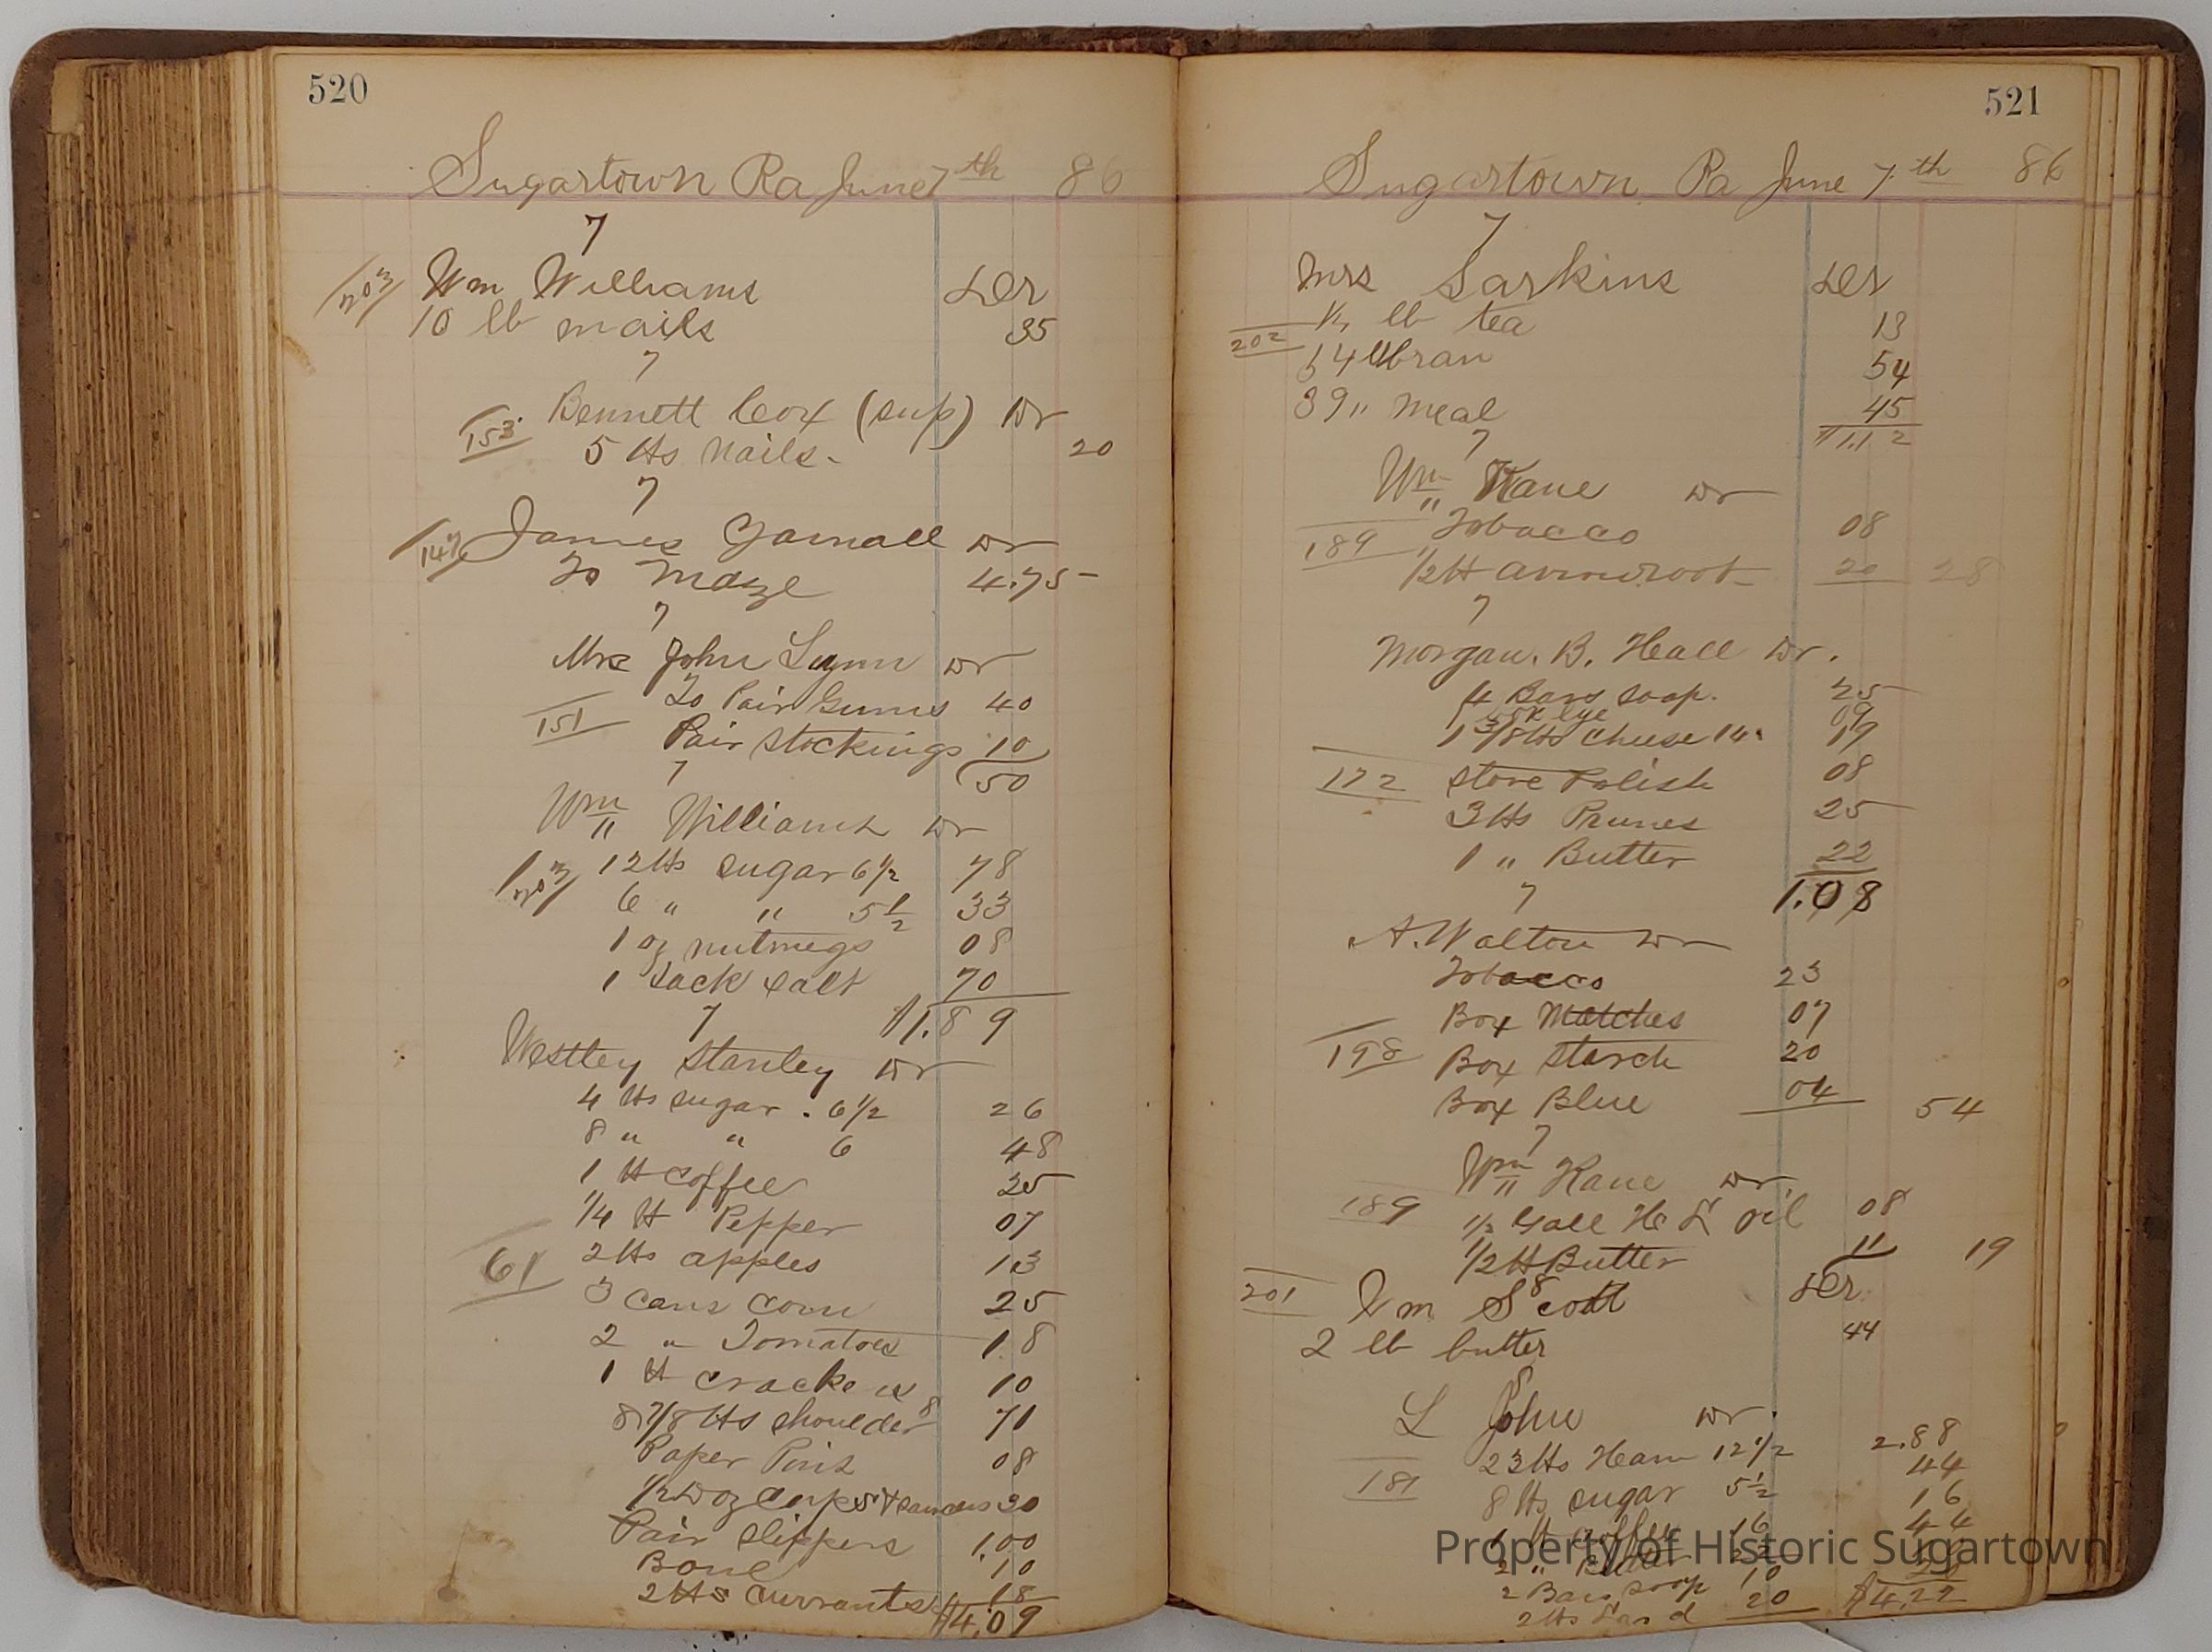 520
Sugartown Pa June 7th 86
7
203 Wm Williams Dr
10 lb nails 35
7
153 Bennett Cox (sup) Dr
5 lbs nails. 20
7
147 James Yarnall Dr
To Maze 4.75
7
Mrs John Lynn Dr
To Pair Gums 40
151 Pair Stockings 10
50
7
Wm Williams Dr
203 12 lbs sugar 6 1/2 78
6 " " 5 1/2 33
1 oz nutmegs 08
1 Sack salt 70
7 $1.89
Westley Stanley Dr
4 lbs sugar . 6 1/2 26
8 " " 6 48
1 lb coffee 25
1/4 lb Pepper 07
61 2 lbs apples 13
3 cans corn 25
2 " Tomatoes 18
1 lb crackers 10
8 7/8 lbs shoulder 8 71
Paper Pins 08
1/2 Doz cups & saucers 30
Pair Slippers 1.00
Bone 10
2 lbs currants 18
$4.09
521
Sugartown Pa June 7th 86
7
Mrs Larkins Dr
1/4 lb tea 13
202
54 lb bran 54
39 " meal 45
7 $1.12
Wm Kane Dr
Tobacco 08
189
1/2 lb arrowroot 20 28
7
Morgan. B. Hall Dr.
4 Bars soap. 25
lye 09
1 3/8 lbs cheese 14 19
172 Stove Polish 08
3 lbs Prunes 25
1 " Butter 22
7 1.08
A. Walton Dr
Tobacco 23
Box Matches 07
198 Box Starch 20
Box Blue 04 54
7
Wm Kane Dr
189 1/2 Gall H L oil 08
1/2 lb Butter 11 19
8
201 Wm Scott Dr
2 lb butter 44
8
L John Dr.
23 lbs Ham 12 1/2 2.88
181 8 lbs sugar 5 1/2 44
1 lb coffee 16 16
2 " Butter 22 44
2 Bars soap 10
2 lbs Lard 20 $4.22
Property of Historic Sugartown